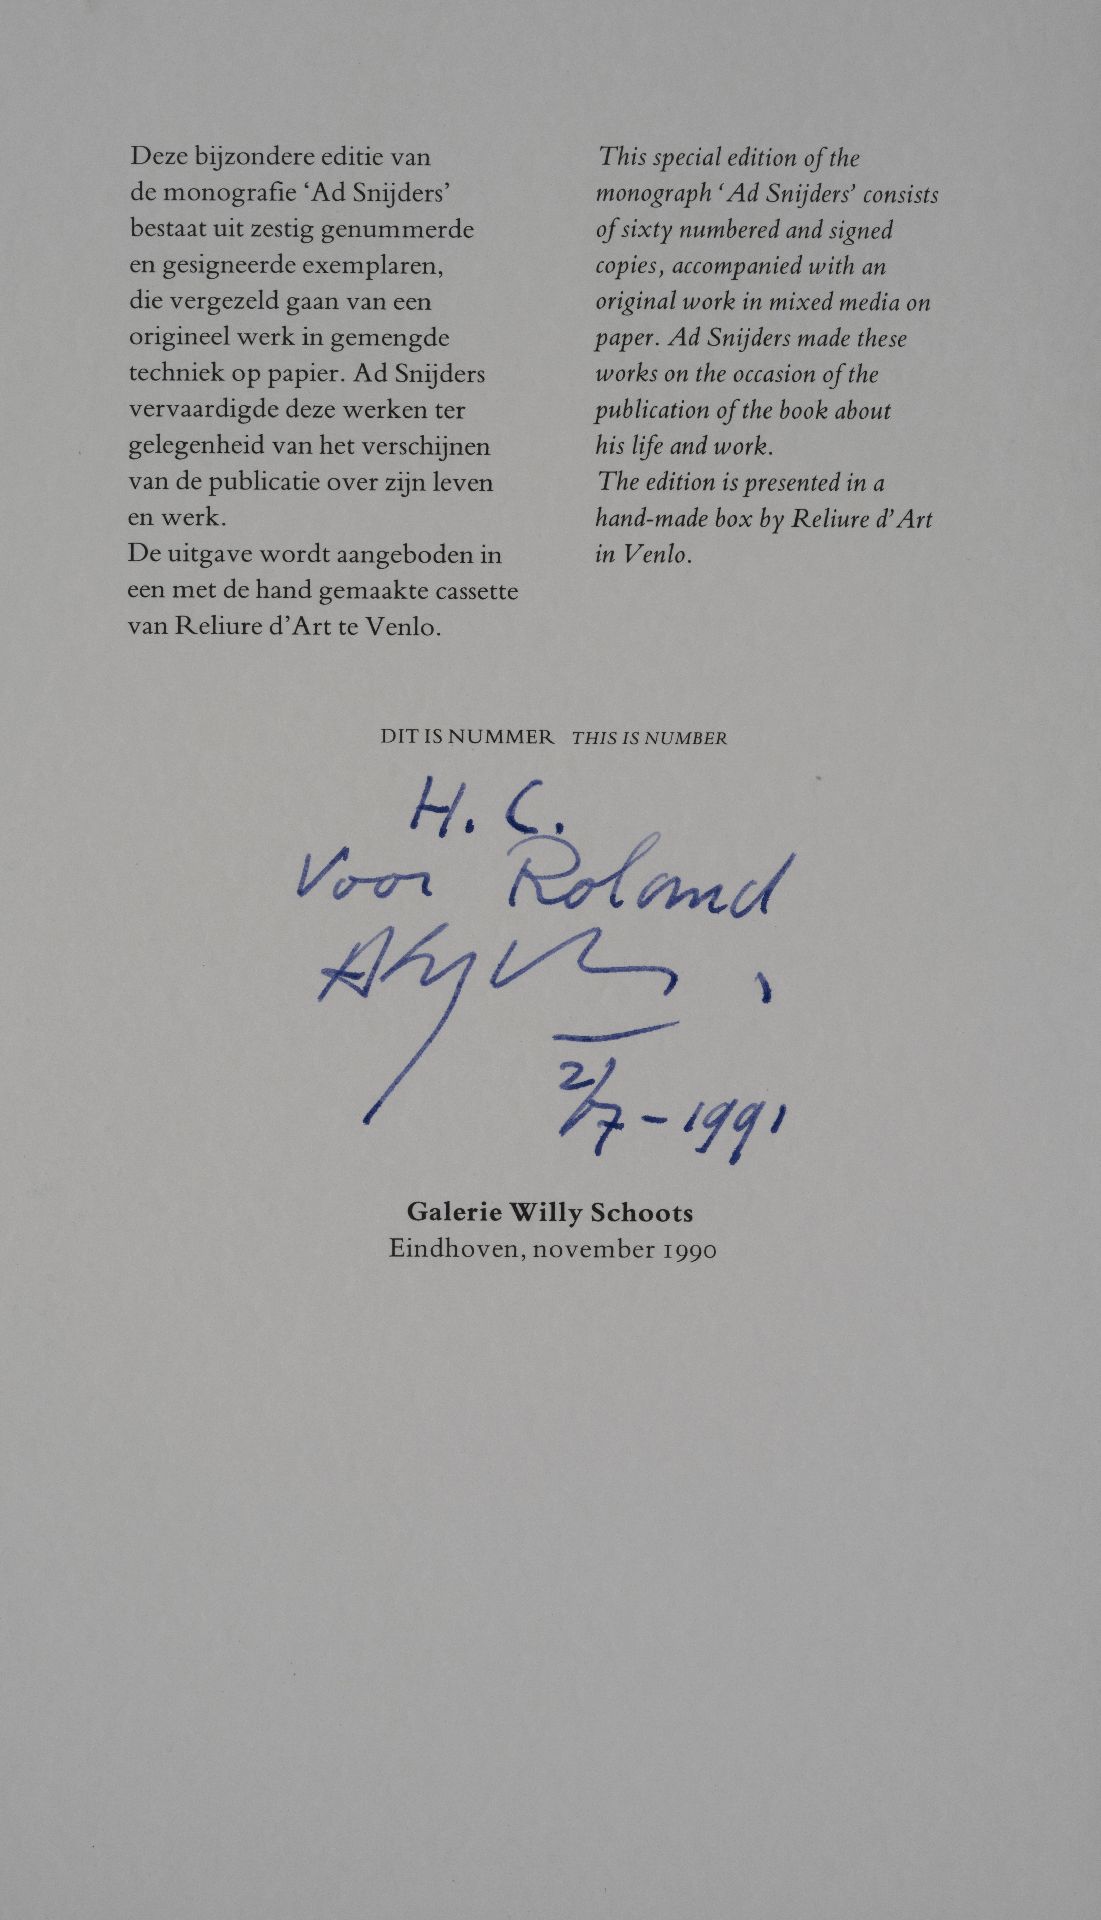 Deze bijzondere editie van
de monografie ‘Ad Snijders’
bestaat uit zestig genummerde
en gesigneerde exemplaren,
die vergezeld gaan van een
origineel werk in gemengde
techniek op papier. Ad Snijders
vervaardigde deze werken ter
gelegenheid van het verschijnen
van de publicatie over zijn leven
en werk.
De uitgave wordt aangeboden in
een met de hand gemaakte cassette
van Reliure d’Art te Venlo.
This special edition of the
monograph ‘Ad Snijders’ consists
of sixty numbered and signed
copies, accompanied with an
original work in mixed media on
paper. Ad Snijders made these
works on the occasion of the
publication of the book about
his life and work.
The edition is presented in a
hand-made box by Reliure d’Art
in Venlo.
DIT IS NUMMER THIS IS NUMBER
H. C.
Voor Roland
2/7-1991
Galerie Willy Schoots
Eindhoven, november 1990